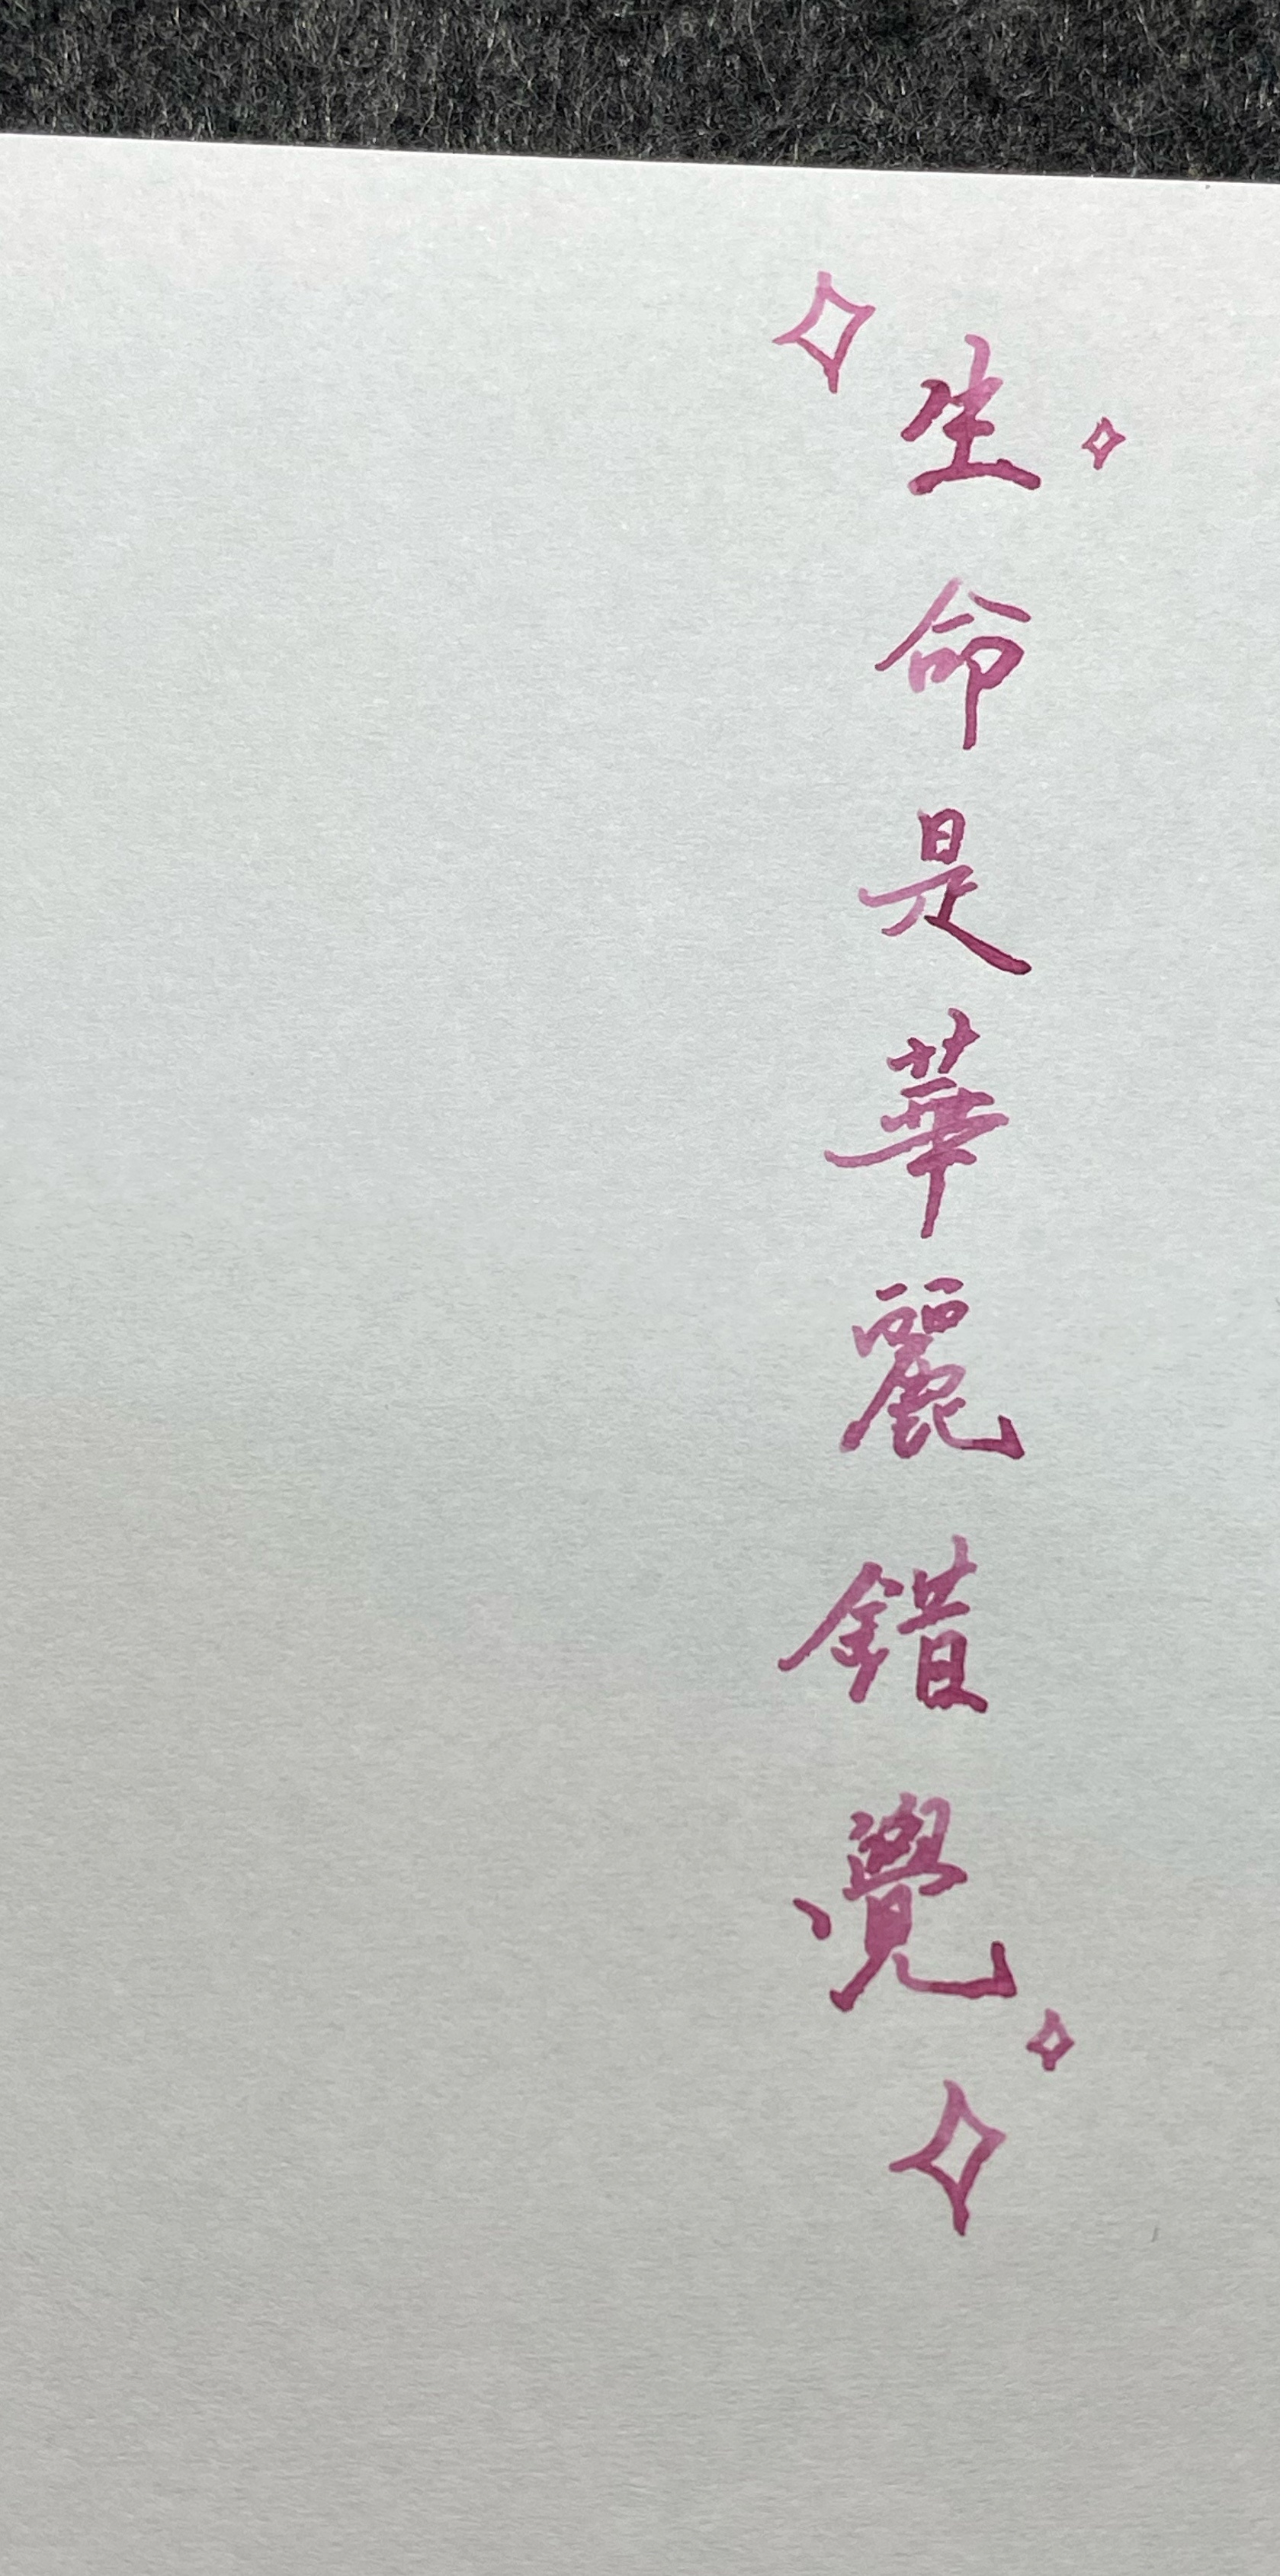 生命是華麗錯覺